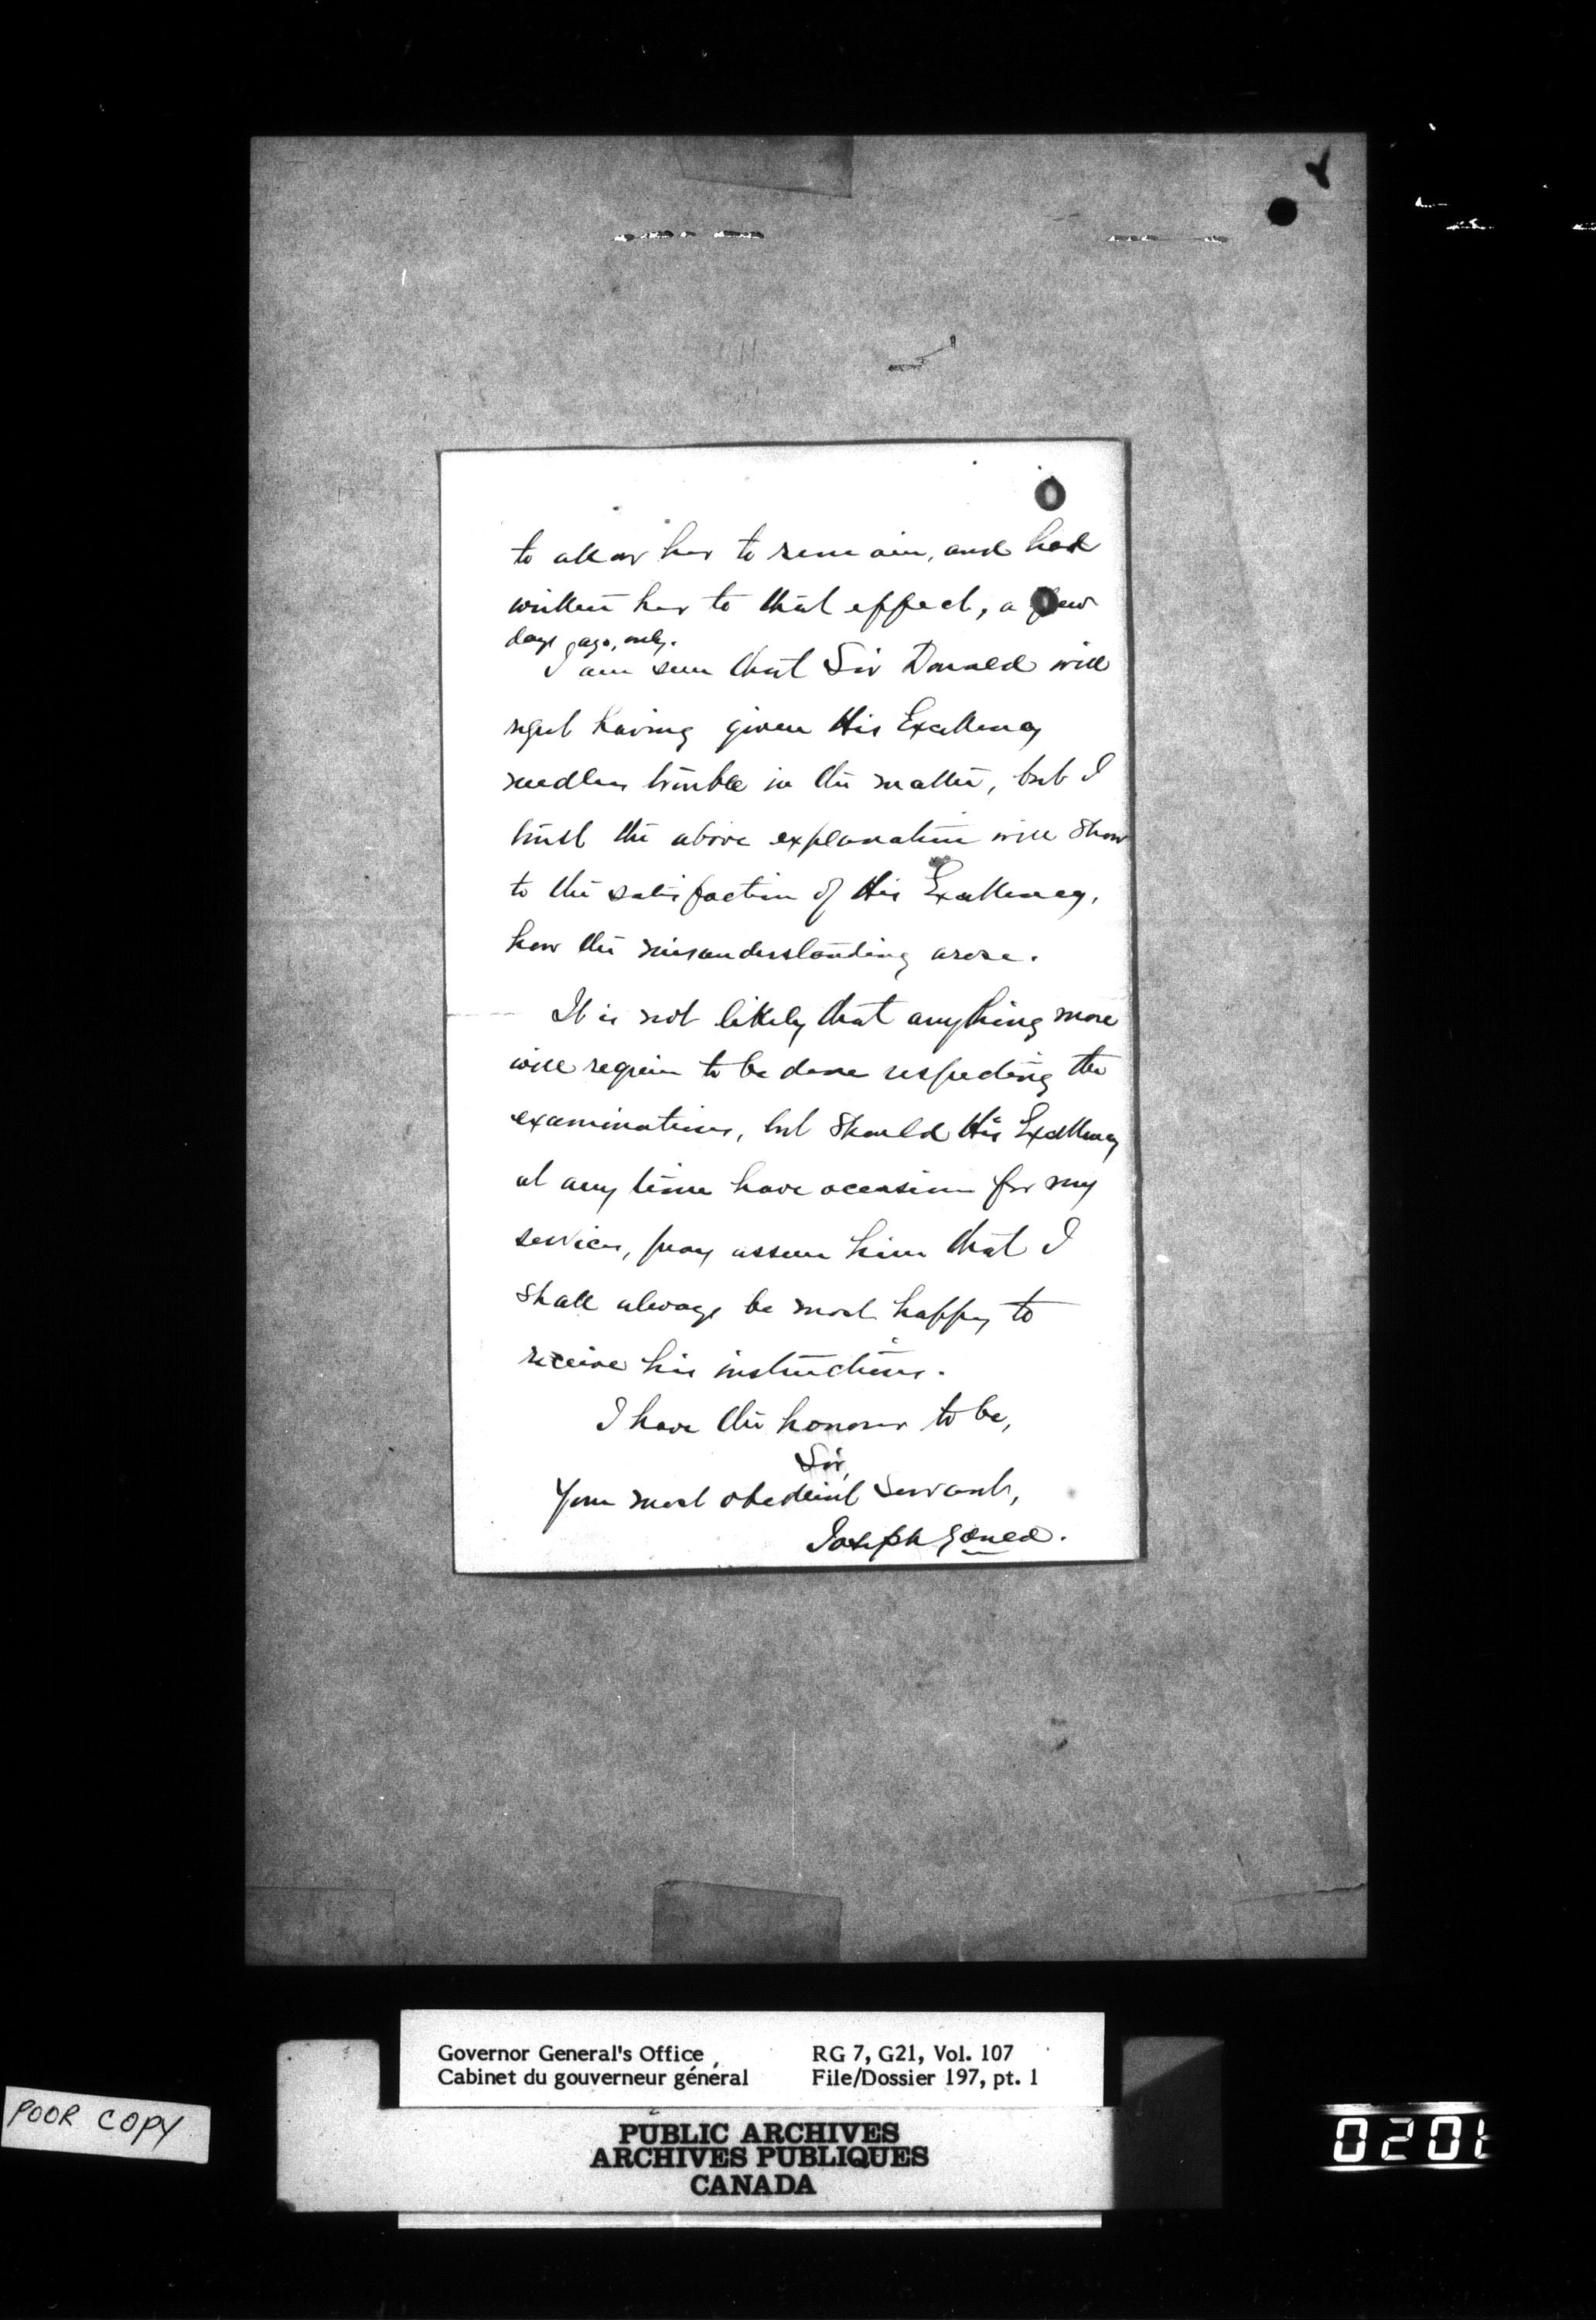 to allow her to remain, and had
written her to that effect, a few
days ago, only.
I am sure that Sir Donald will
regret having given His Excellency
needless trouble in the matter, but I
trust the above explanation will show
to the satisfaction of His Excellency,
how the misunderstanding arose.
It is not likely that anything more
will require to be done respecting the
examinations, but should His Excellency
at any time have occasion for my
services, pray assure him that I
shall always be most happy to
receive his instructions.
I have the honour to be,
Sir,
Your most obedient Servant,
Joseph Gould.
Governor General's Office
Cabinet du gouverneur général
RG 7, G21, Vol. 107
File/Dossier 197, pt. 1
POOR COPY
PUBLIC ARCHIVES
ARCHIVES PUBLIQUES
CANADA
0201